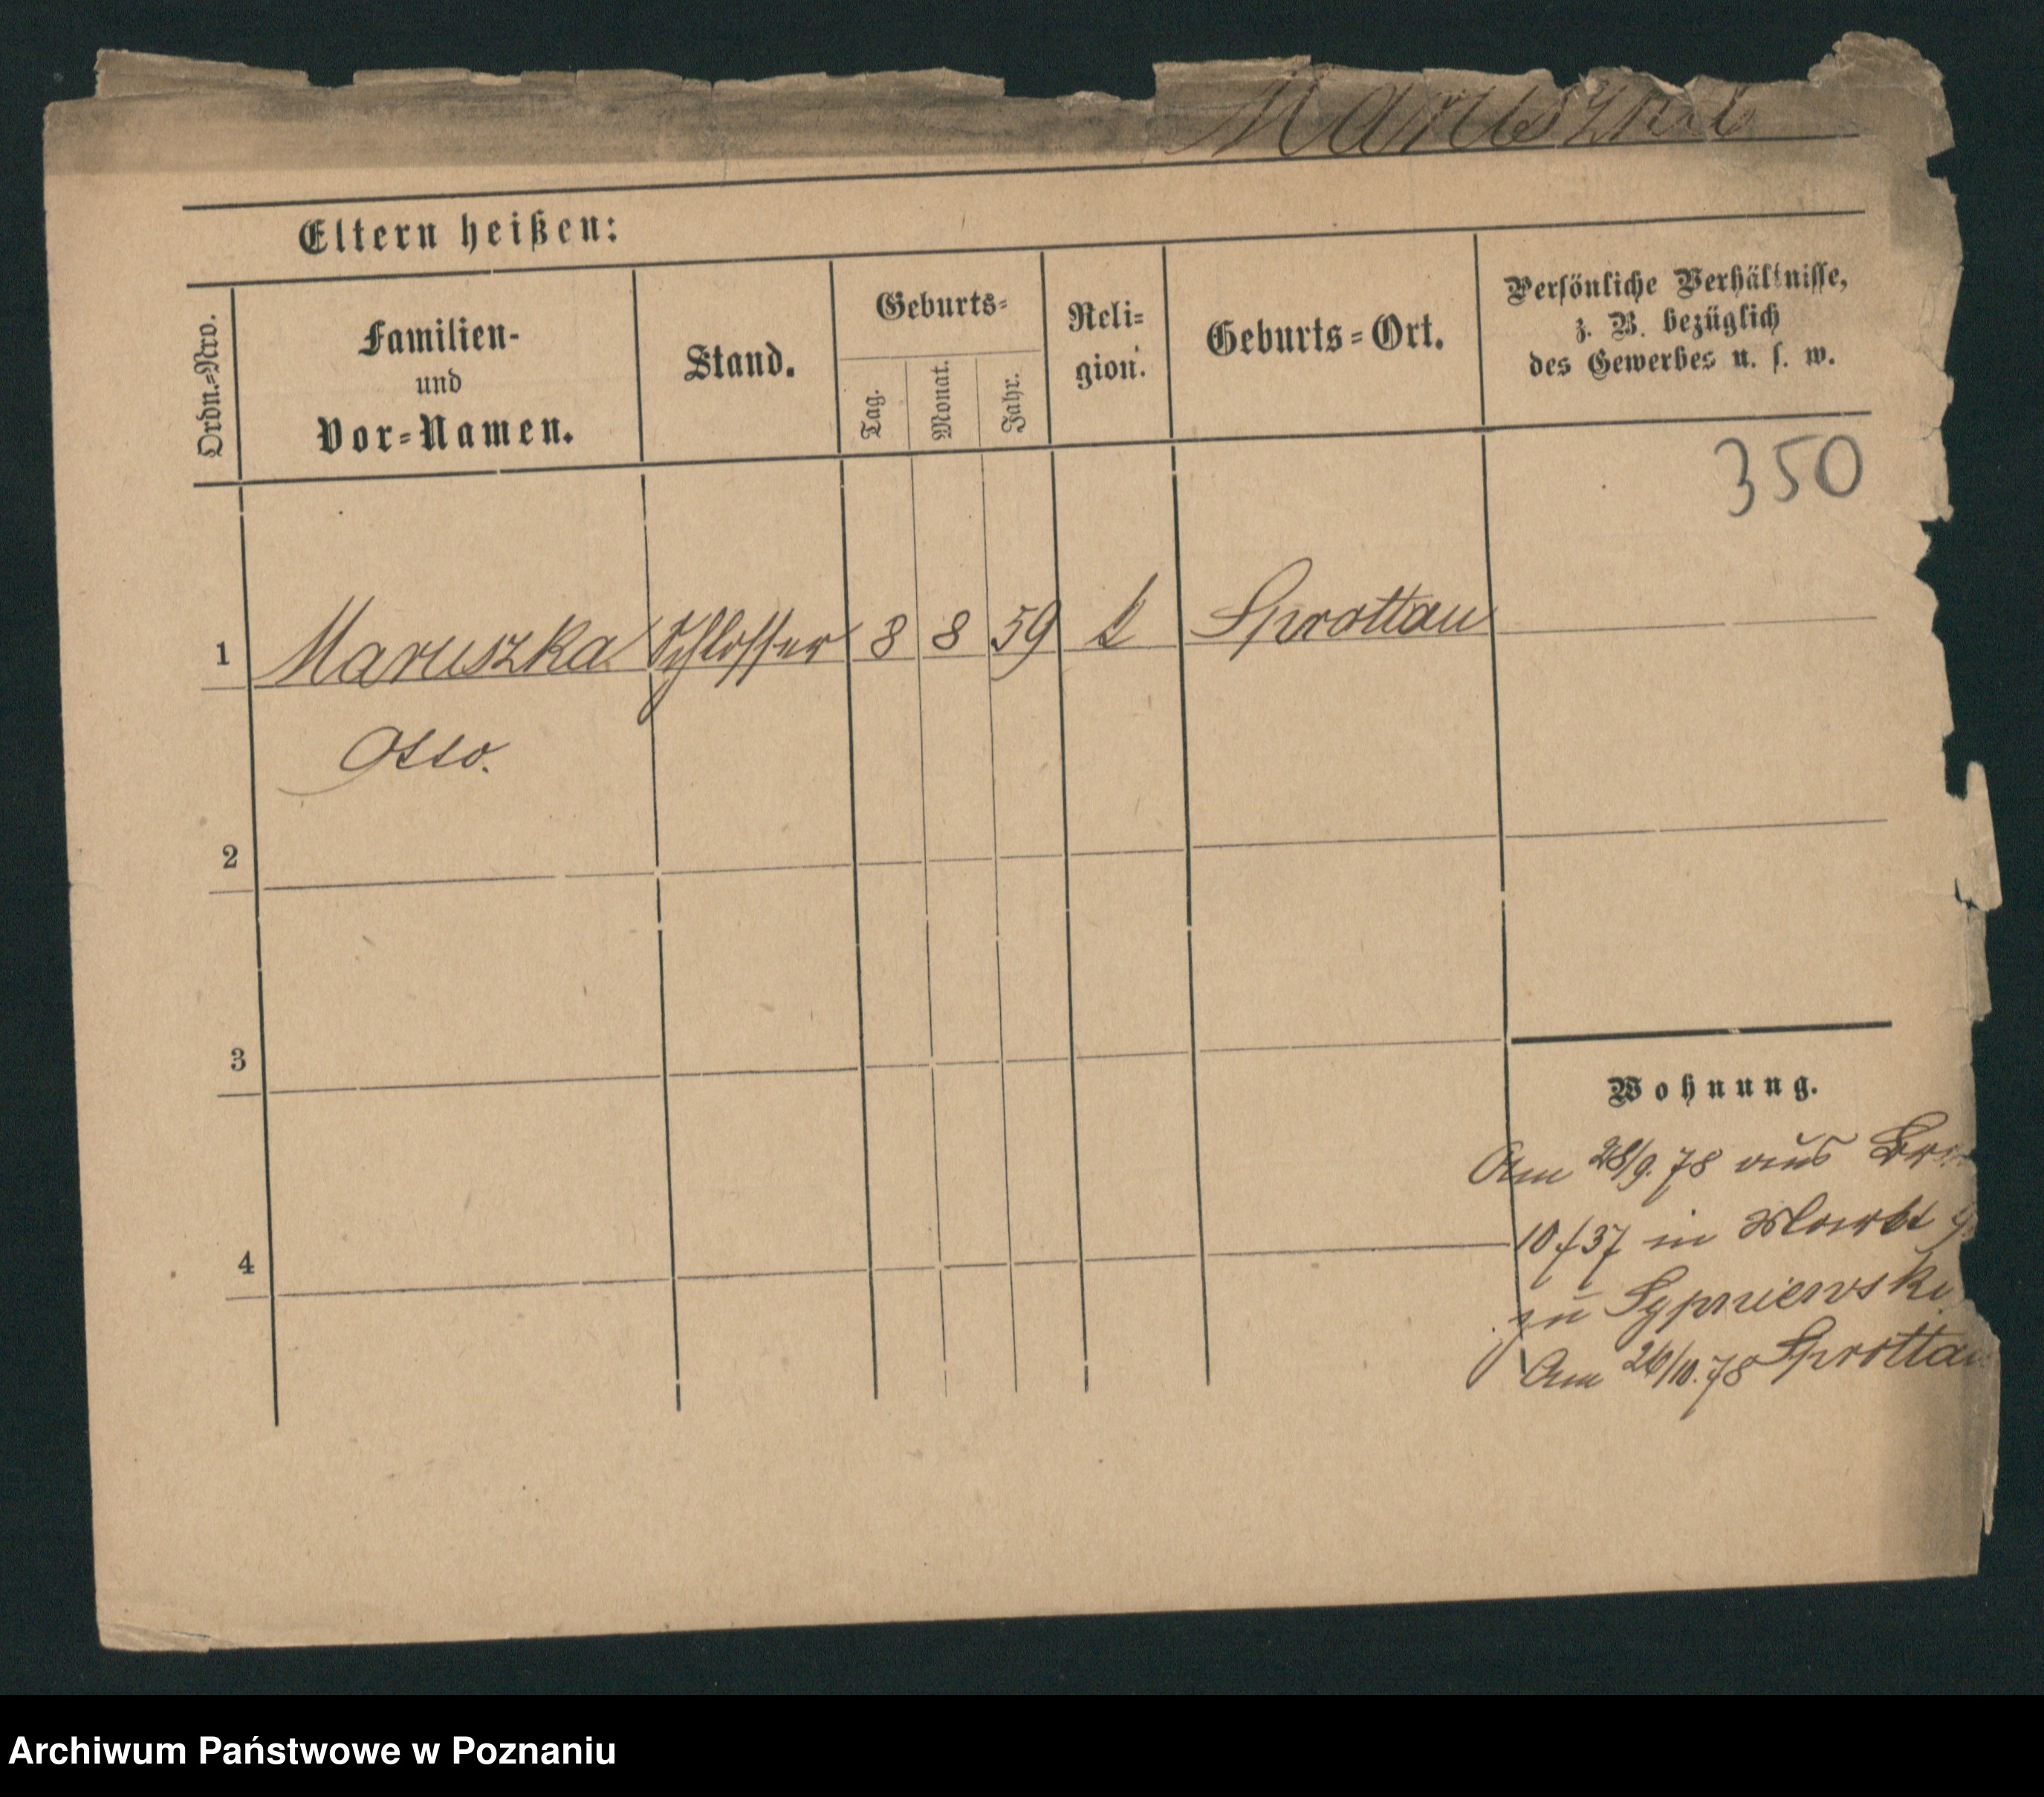 Maruszka
Eltern heißen:
Ordn.=Nro.
Familien-
und
Vor=Namen.
Stand.
Geburts=
Tag.
Monat.
Jahr.
Reli=
gion.
Geburts=Ort.
Persönliche Verhältnisse,
z. B. bezüglich
des Gewerbes u. s. w.
350
1 Maruszka Schlosser 8 8 59 Sprottau
Otto.
2
3
4
Wohnung.
Am 28/9. 78 aus
10/37 in Markt
zu Sypniewski
Am 26/10. 78 Sprottau
Archiwum Państwowe w Poznaniu